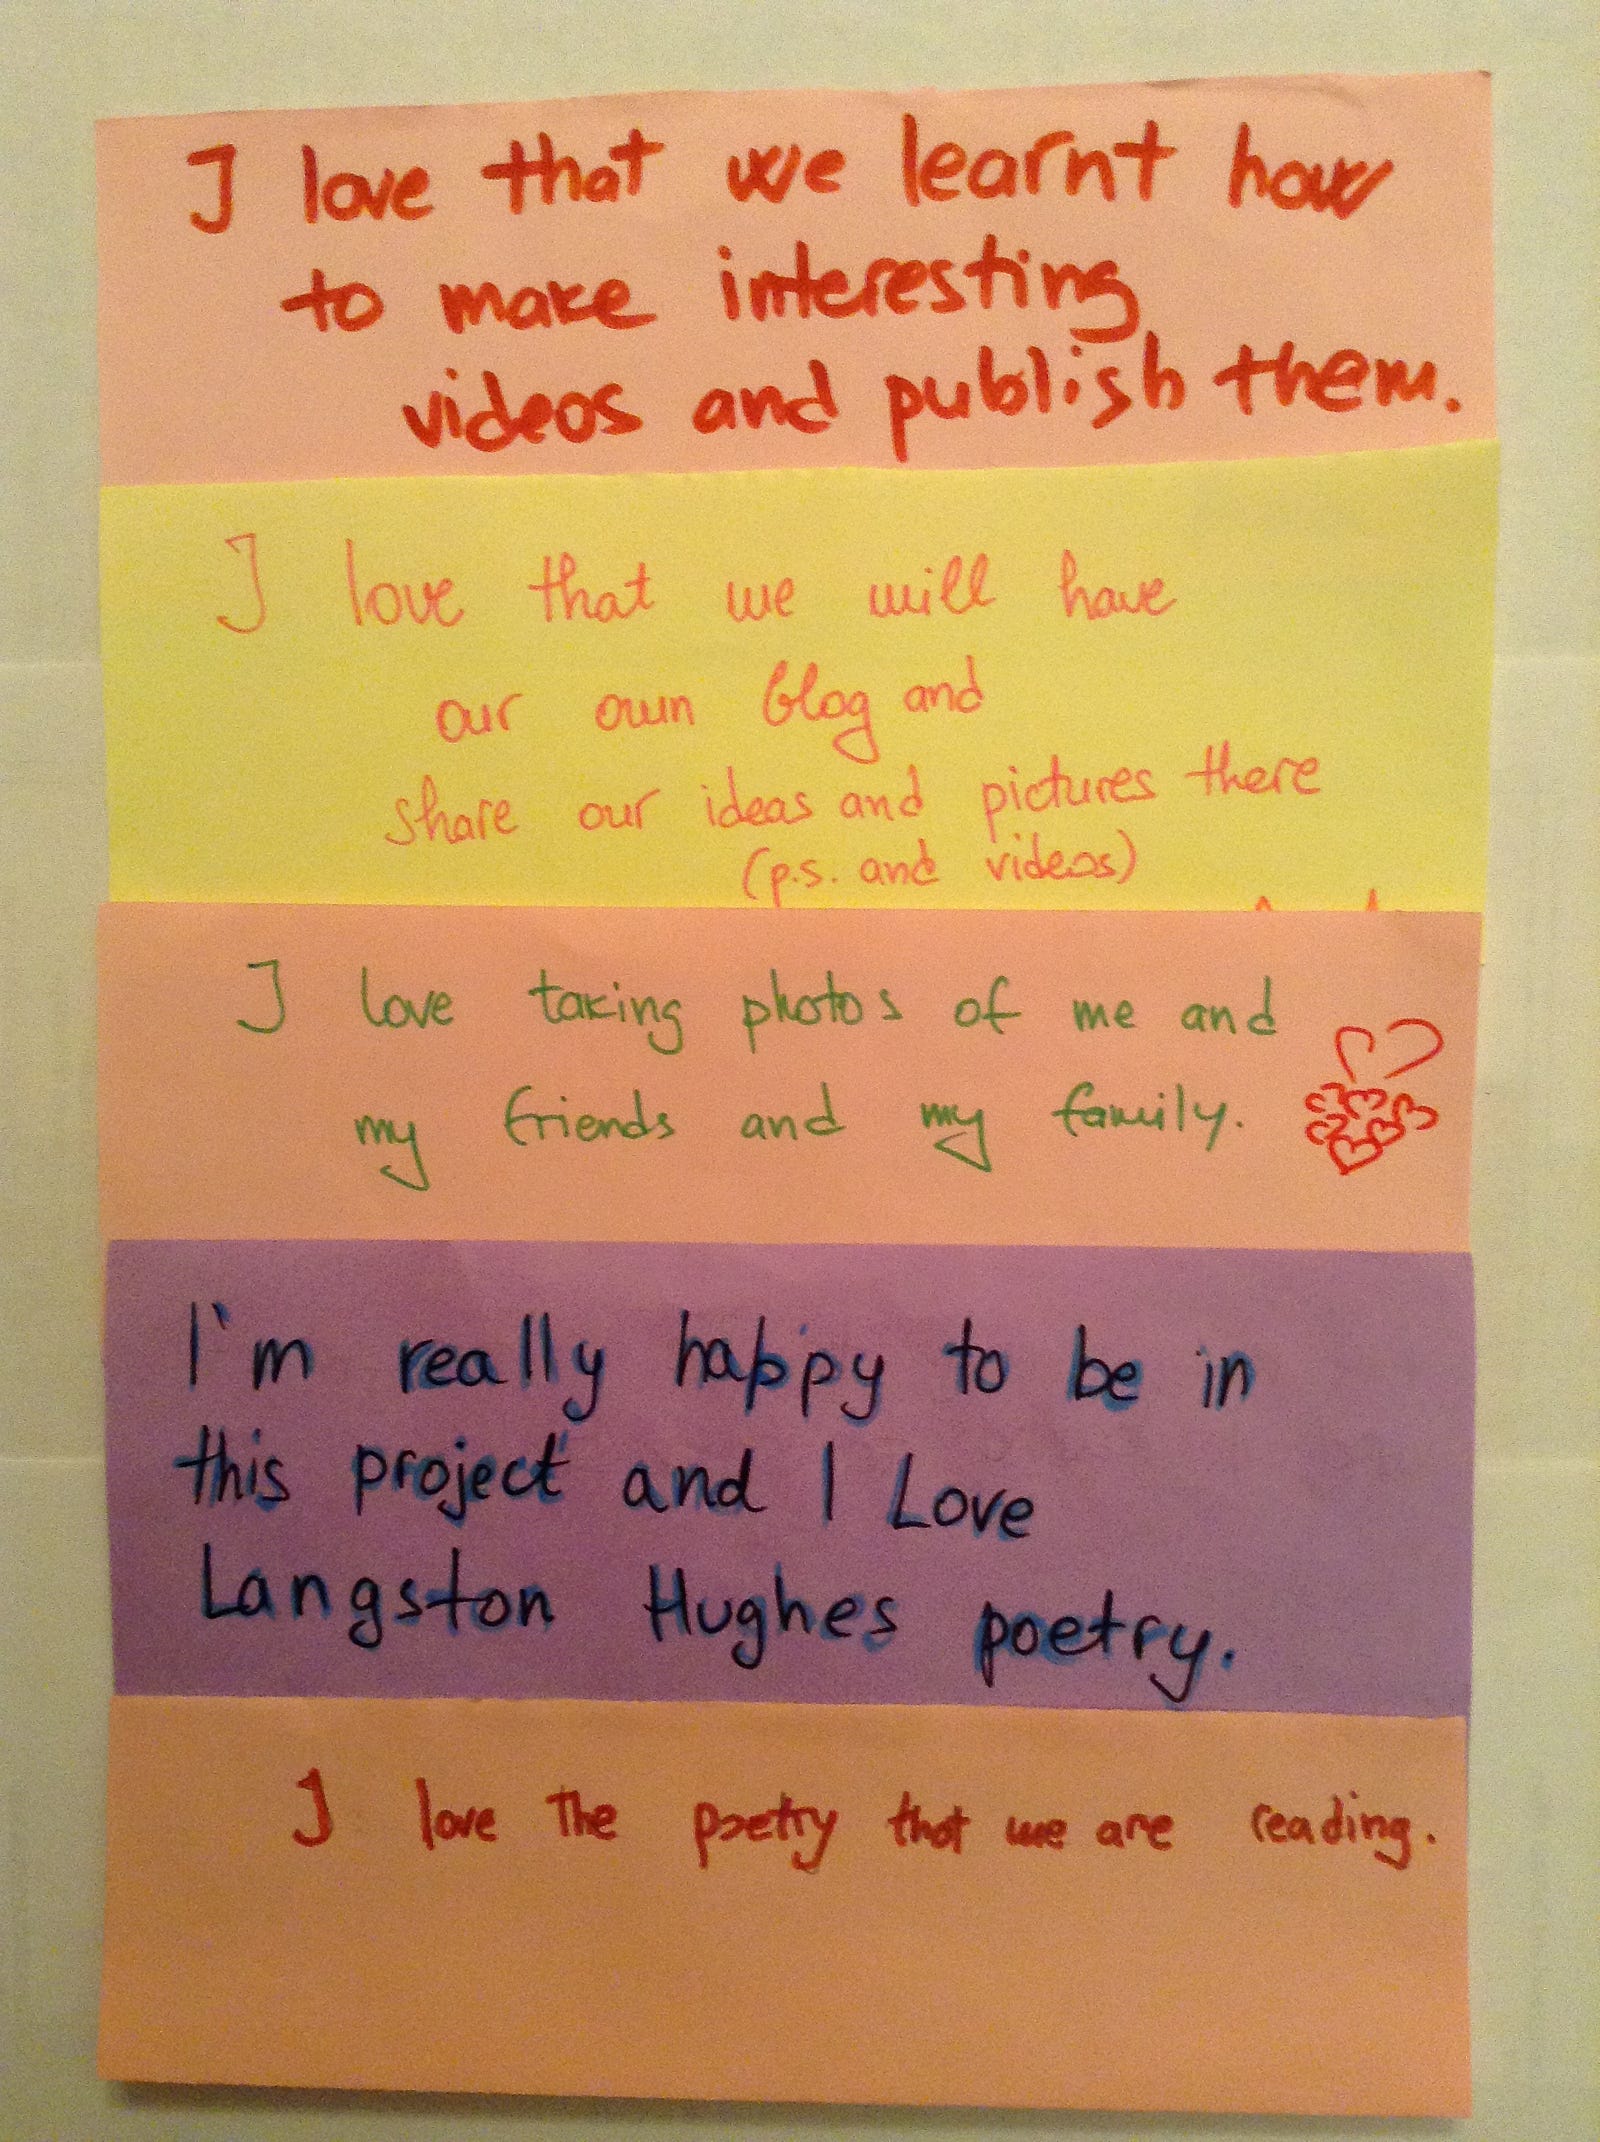 I love that we learnt how
to make interesting
videos and publish them.
I love that we will have
our own blog and
share our ideas and pictures there
(p.s. and videos)
I love taking photos of me and
my friends and my family.
I'm really happy to be in
this project and I Love
Langston Hughes poetry.
I love the poetry that we are reading.